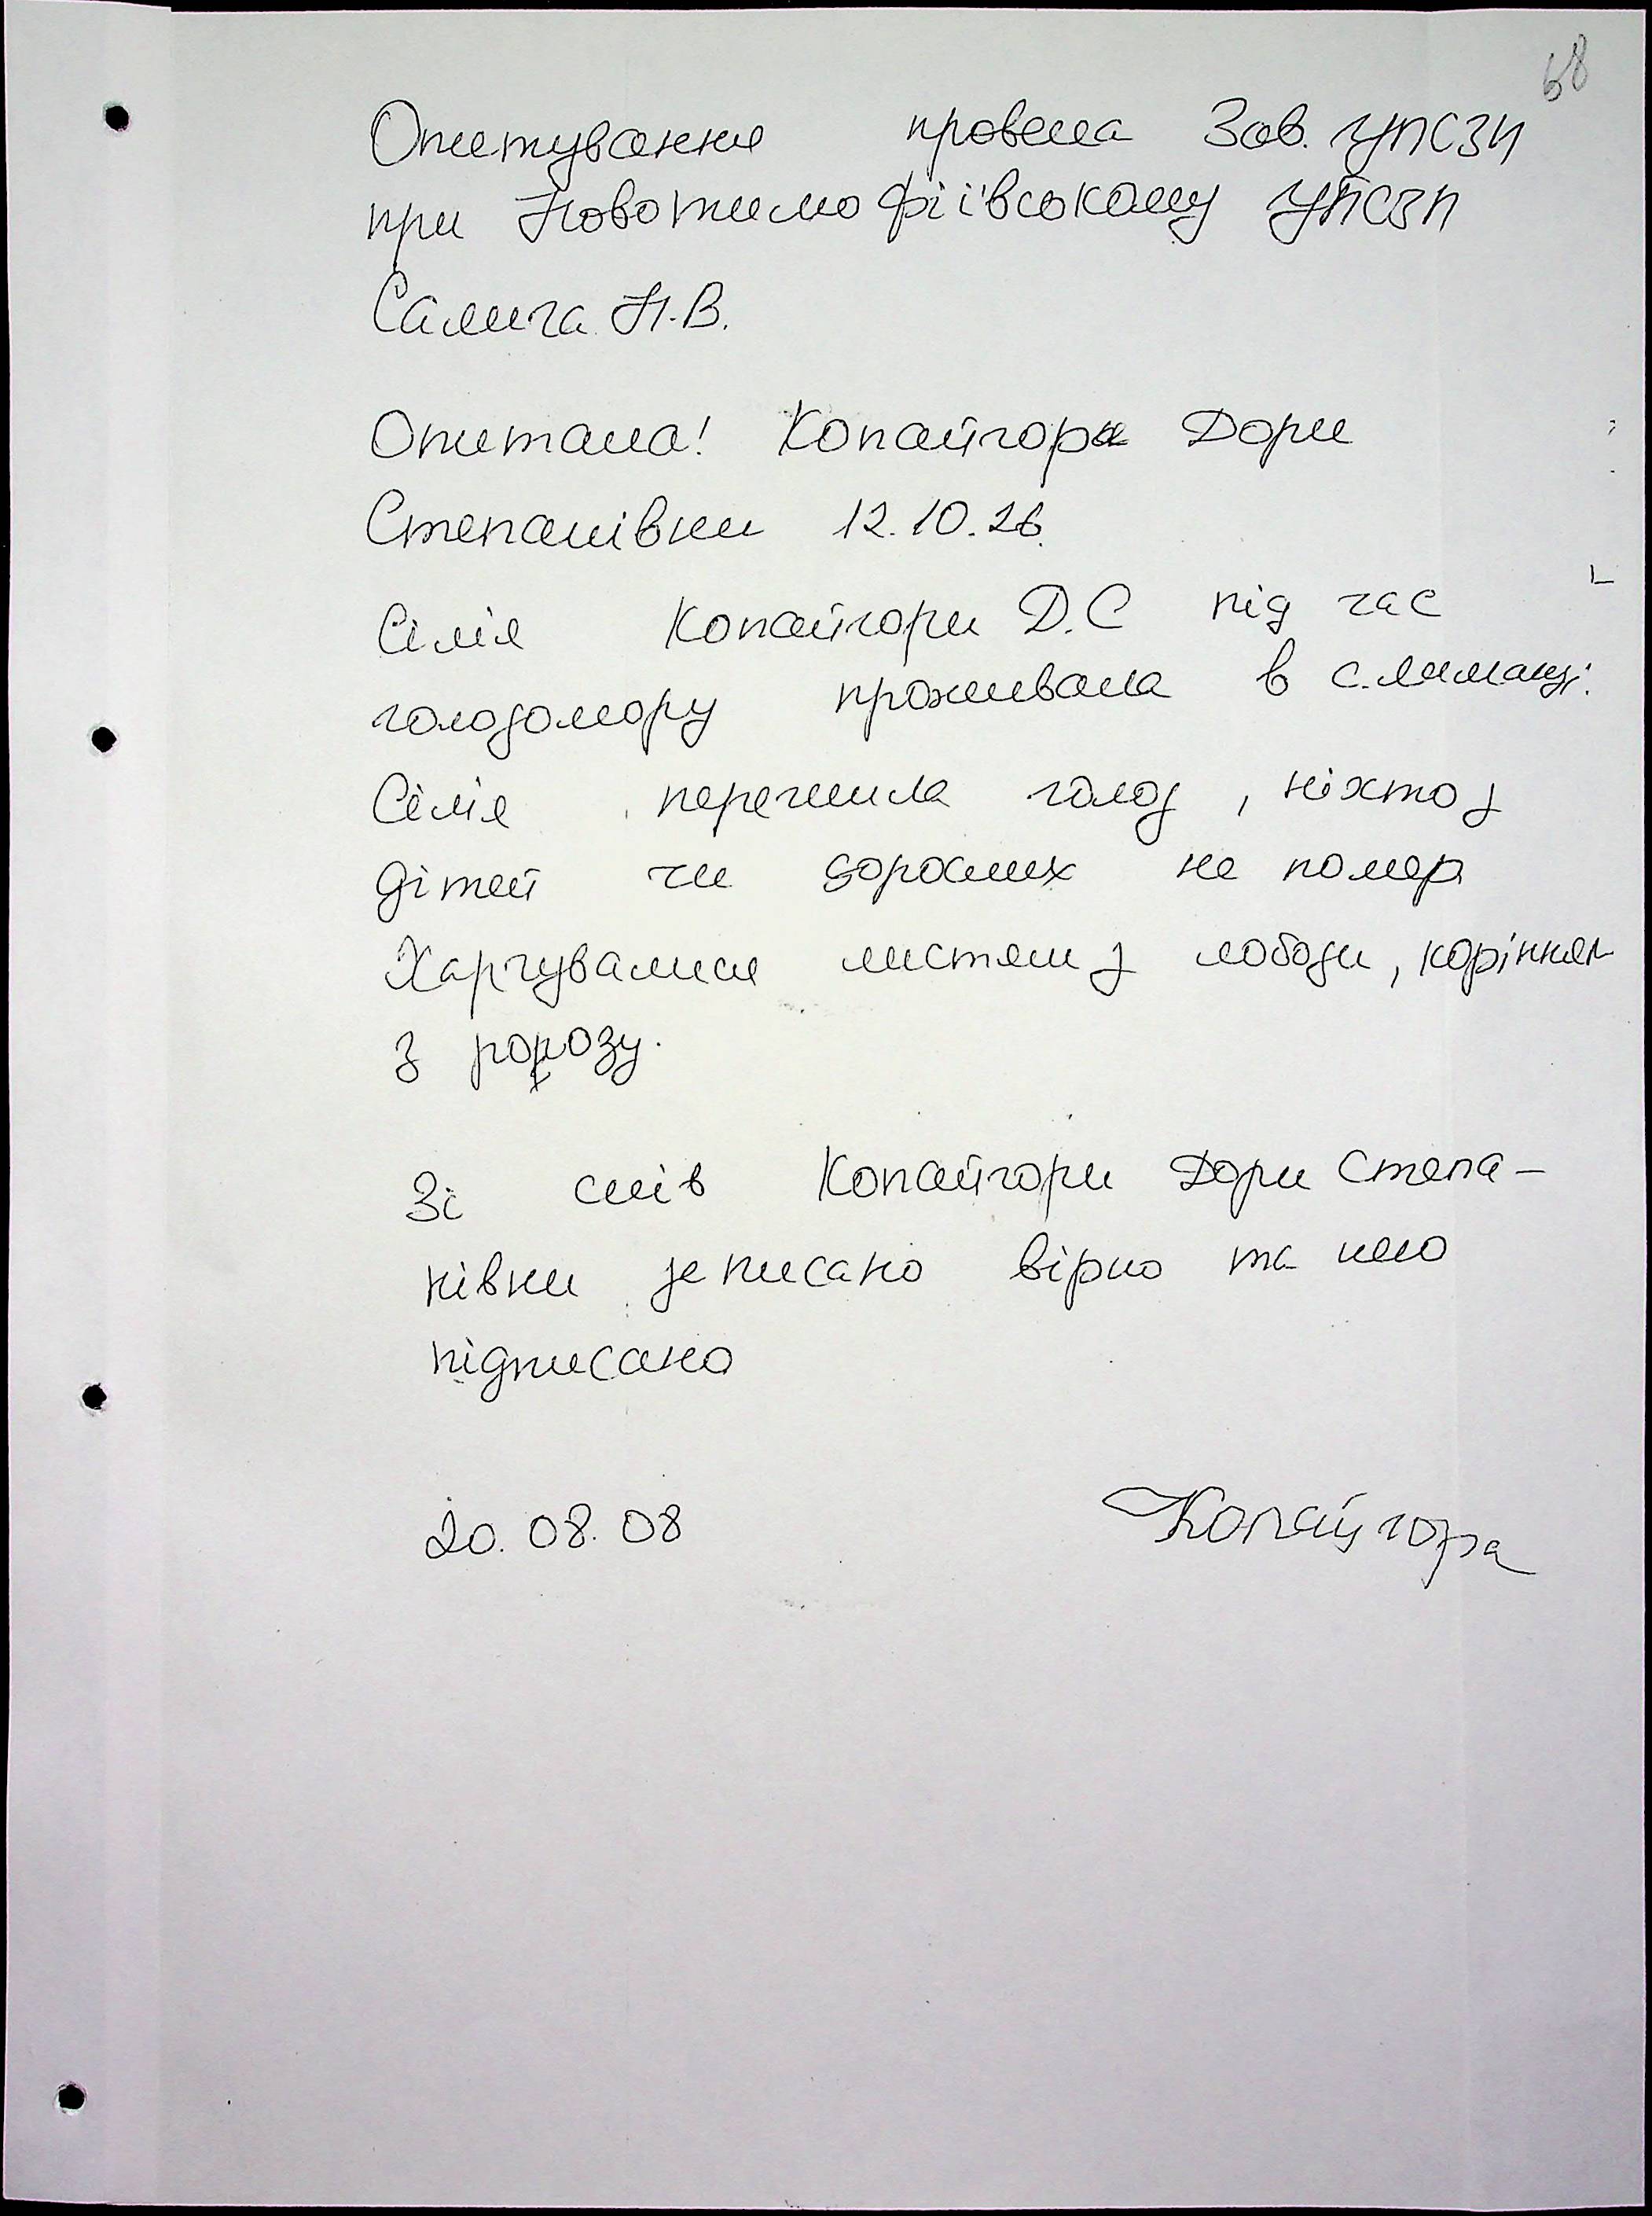 68
Опитування провела Зав. УПСЗН
при Новотимофіївському УПСЗН
Салига Н.В.
Опитала! Копайгора Дори
Степанівни 12.10.26.
Сімія Копайгори Д.С під час
голодомору проживала в с. Лиманці.
Сімія пережила голод, ніхто з
дітей чи дорослих не помер
Харчувалися листям з лободи, корінням
з ророзу.
Зі слів Копайгори Дори Степа-
нівни записано вірно та нею
підписано
20.08.08 Копайгора